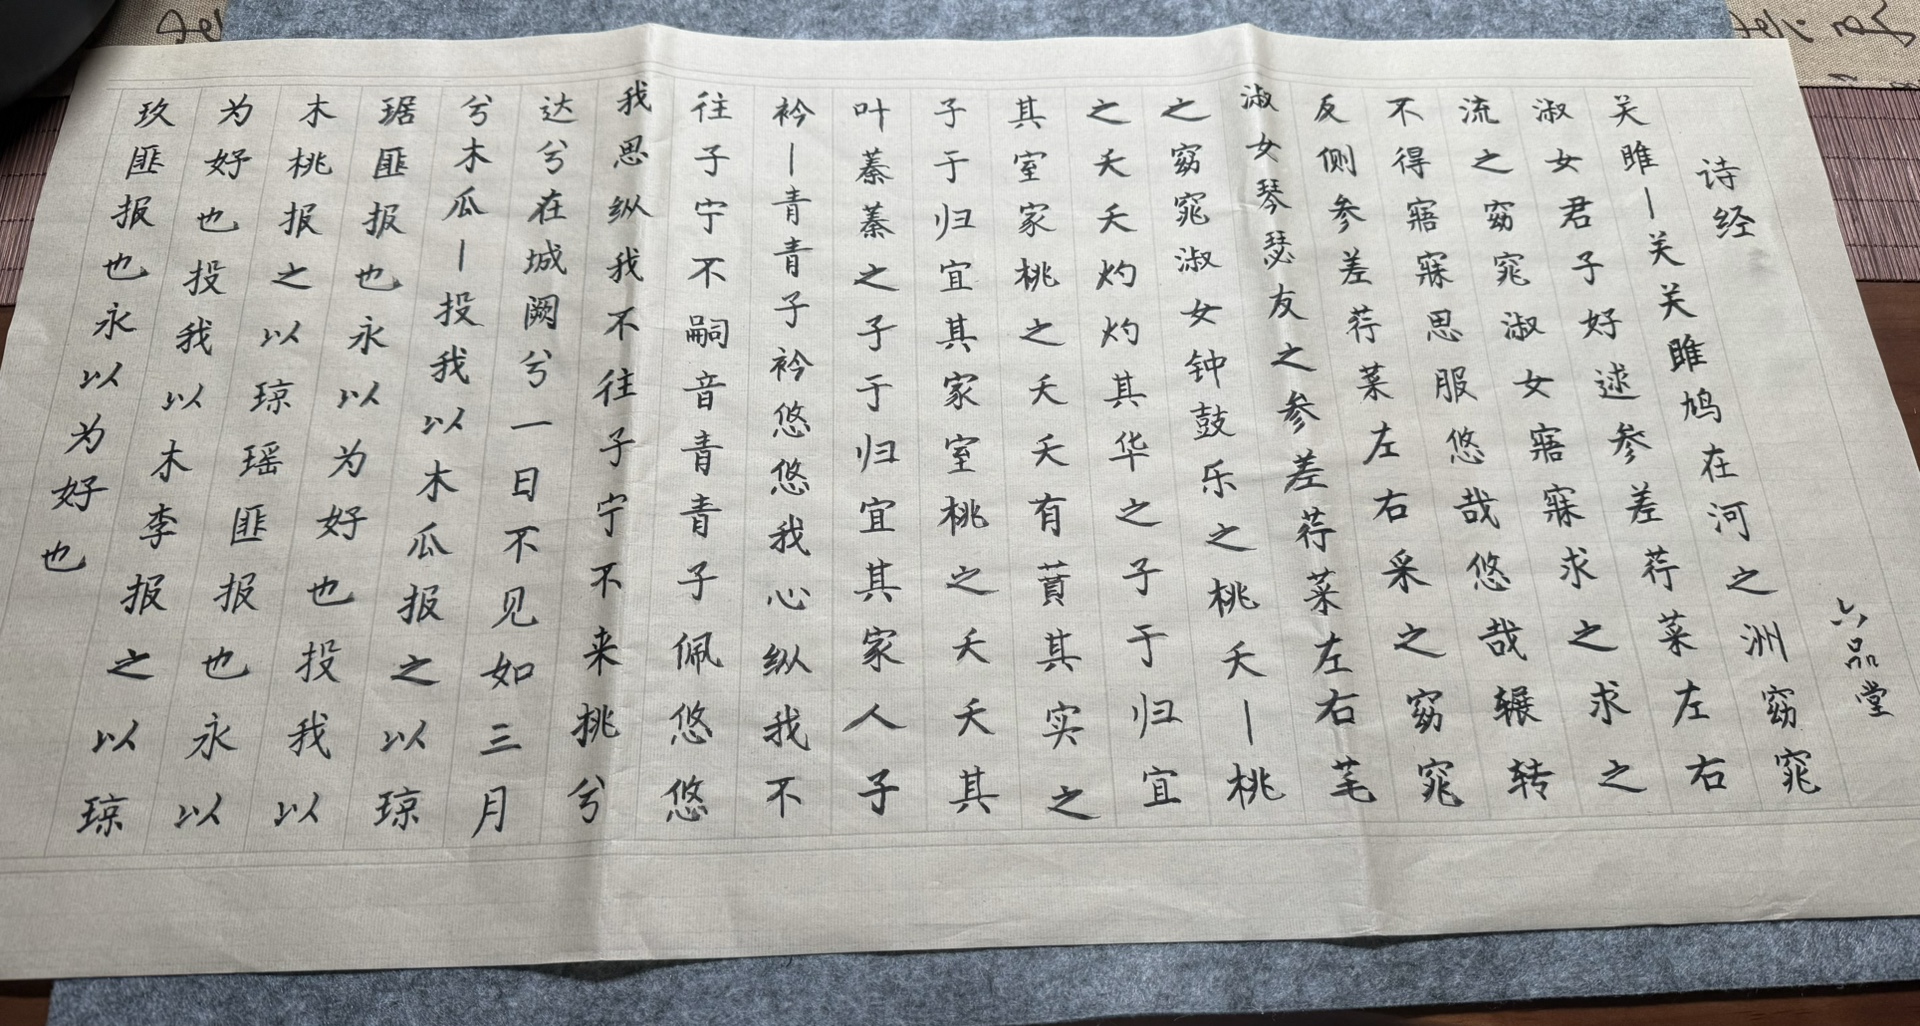 诗经
关雎—关关雎鸠在河之洲窈窕
淑女君子好逑参差荇菜左右
流之窈窕淑女寤寐求之求之
不得寤寐思服悠哉悠哉辗转
反侧参差荇菜左右采之窈窕
淑女琴瑟友之参差荇菜左右芼
之窈窕淑女钟鼓乐之桃夭—桃
之夭夭灼灼其华之子于归宜
其室家桃之夭夭有蕡其实之
子于归宜其家室桃之夭夭其
叶蓁蓁之子于归宜其家人子
衿—青青子衿悠悠我心纵我不
往子宁不嗣音青青子佩悠悠
我思纵我不往子宁不来挑兮
达兮在城阙兮一日不见如三月
兮木瓜—投我以木瓜报之以琼
琚匪报也永以为好也投我以
木桃报之以琼瑶匪报也永以
为好也投我以木李报之以琼
玖匪报也永以为好也
六品堂